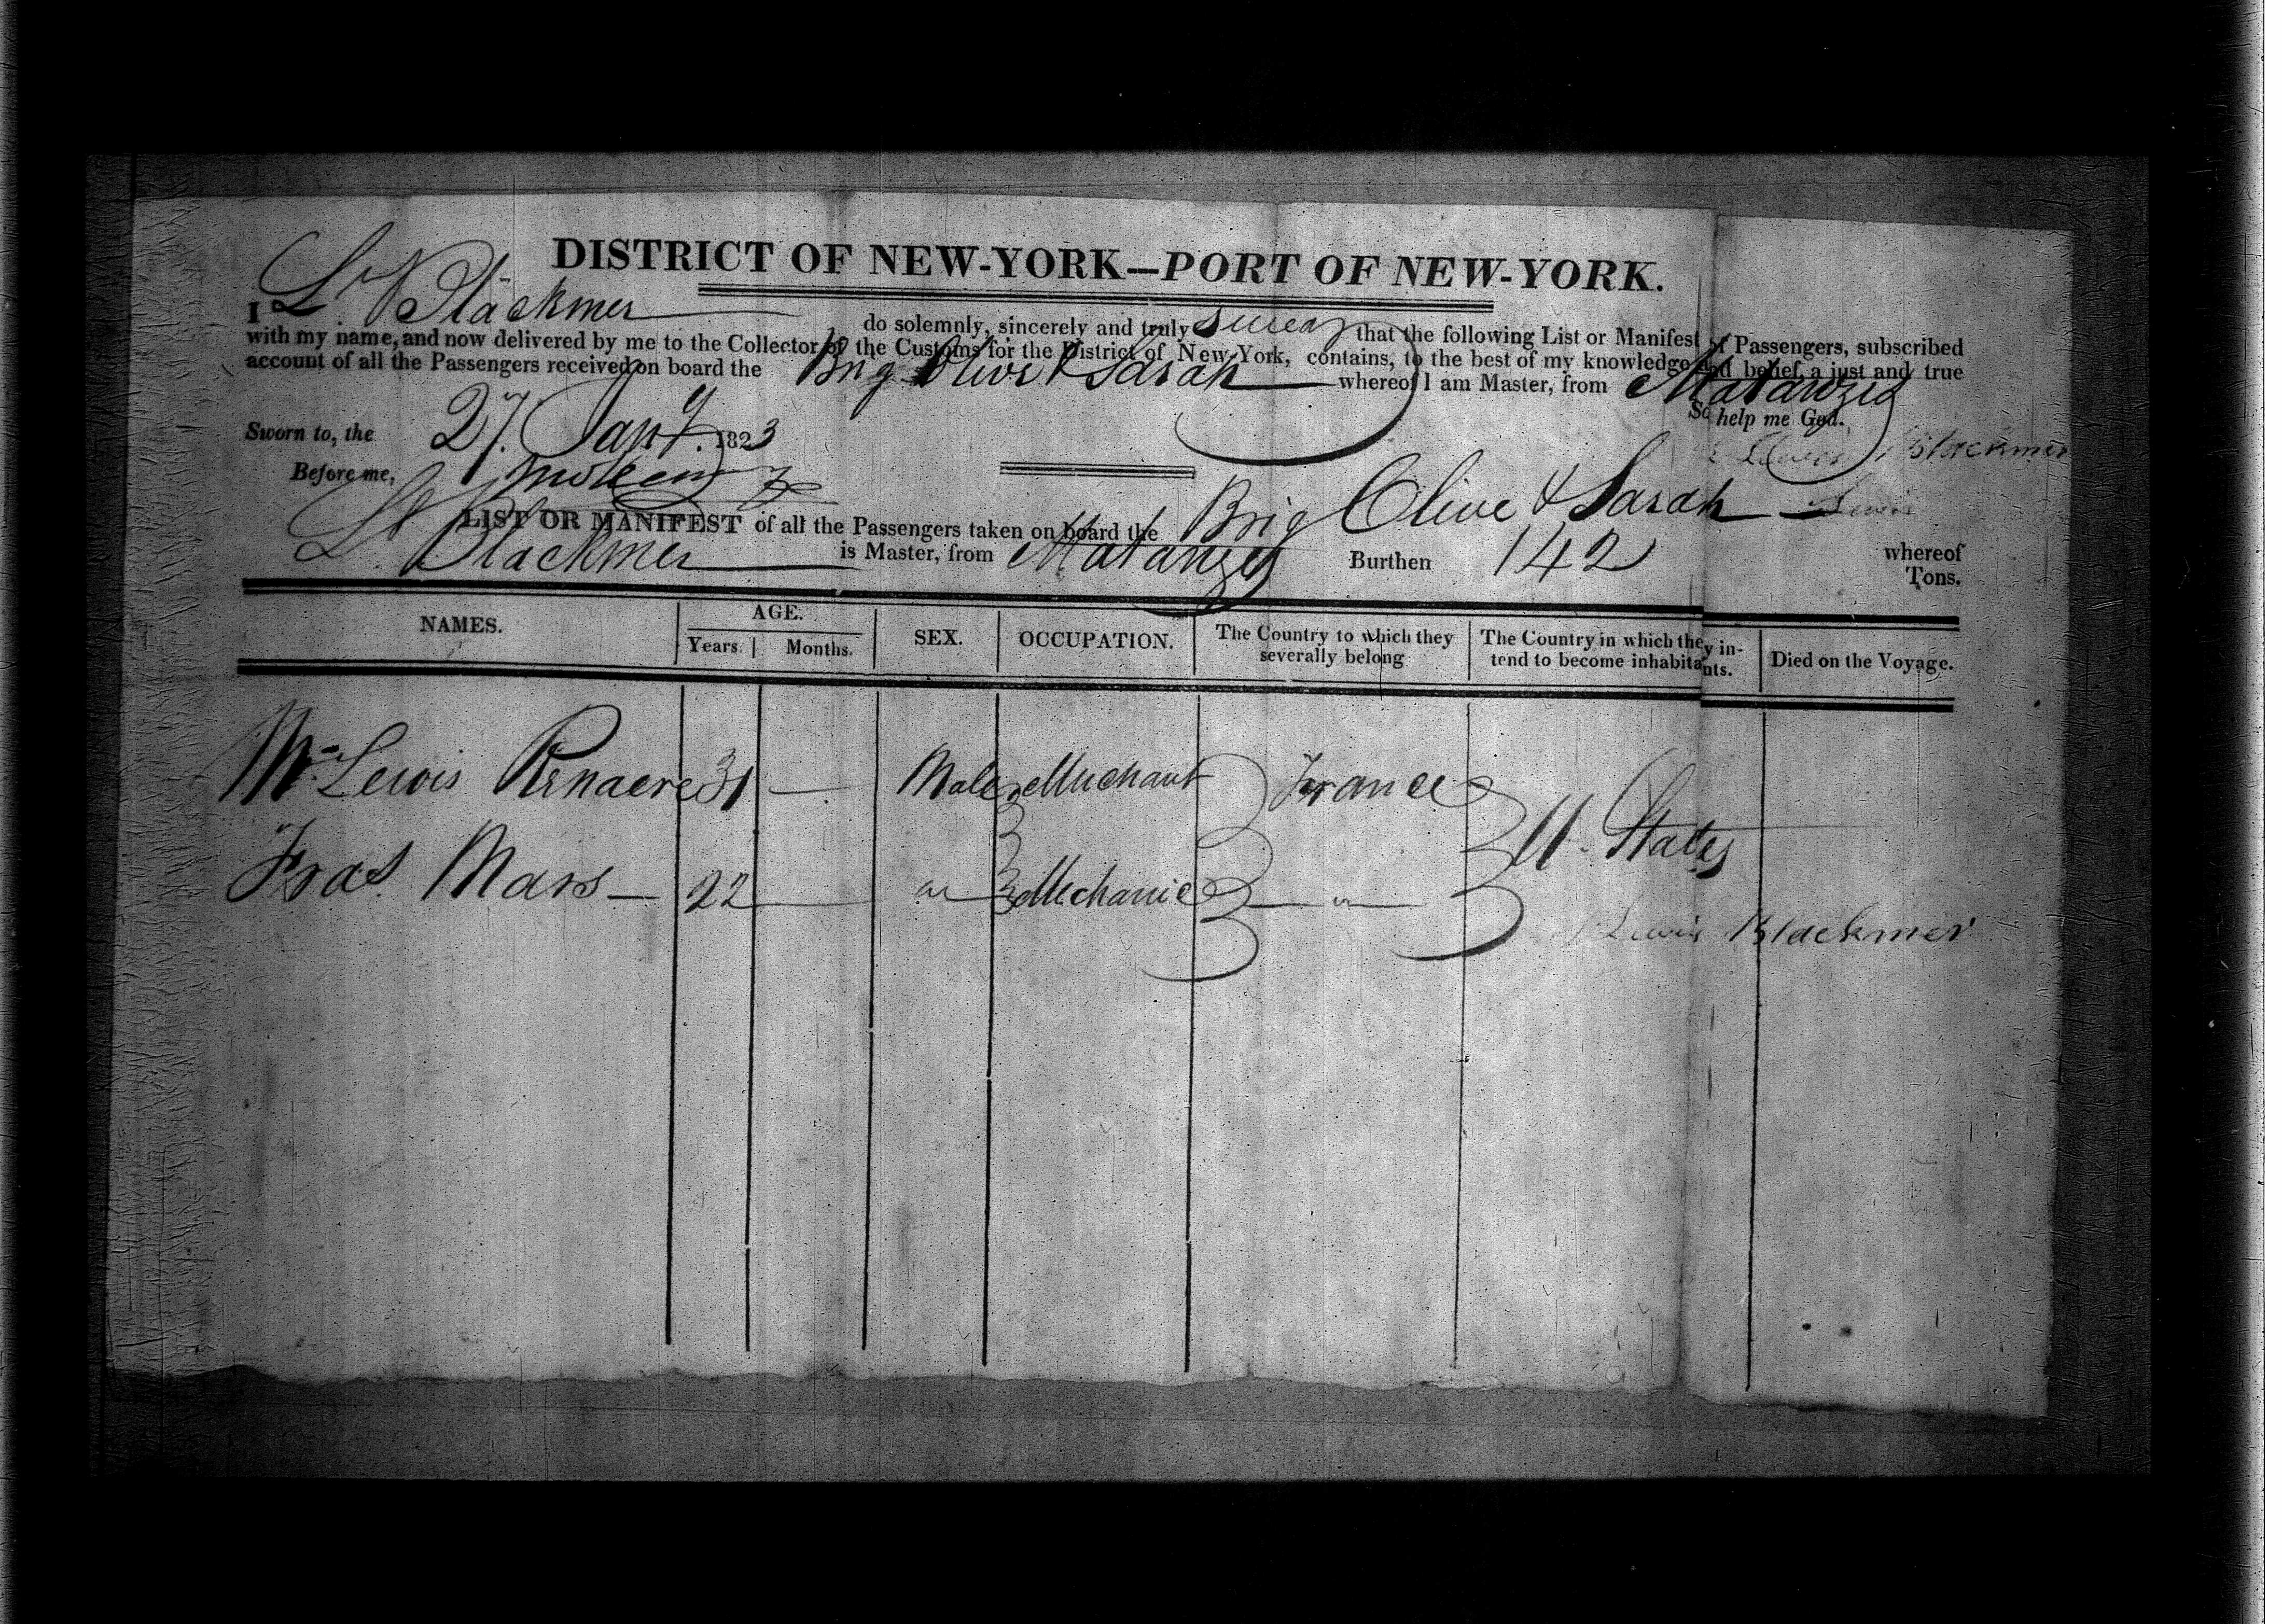 DISTRICT OF NEW-YORK—PORT OF NEW-YORK.
I L. Blackmer do solemnly, sincerely and truly swear that the following List or Manifest of Passengers, subscribed
with my name, and now delivered by me to the Collector of the Customs for the District of New-York, contains, to the best of my knowledge and belief, a just and true
account of all the Passengers received on board the Brig Olive & Sarah whereof I am Master, from Matanzes
So help me God.
Sworn to, the 27. Jany. 1823
Lewis Blackmer
Before me,
LIST OR MANIFEST of all the Passengers taken on board the Brig Olive & Sarah Lewis whereof
L. Blackmer is Master, from Matanzes Burthen 142 Tons.
NAMES. AGE. Years. Months. SEX. OCCUPATION. The Country to which they severally belong The Country in which they intend to become inhabitants. Died on the Voyage.
Mr. Lewis 31 — Male Merchant France U. States
Fras. Mars — 22 Mechanic
Lewis Blackmer